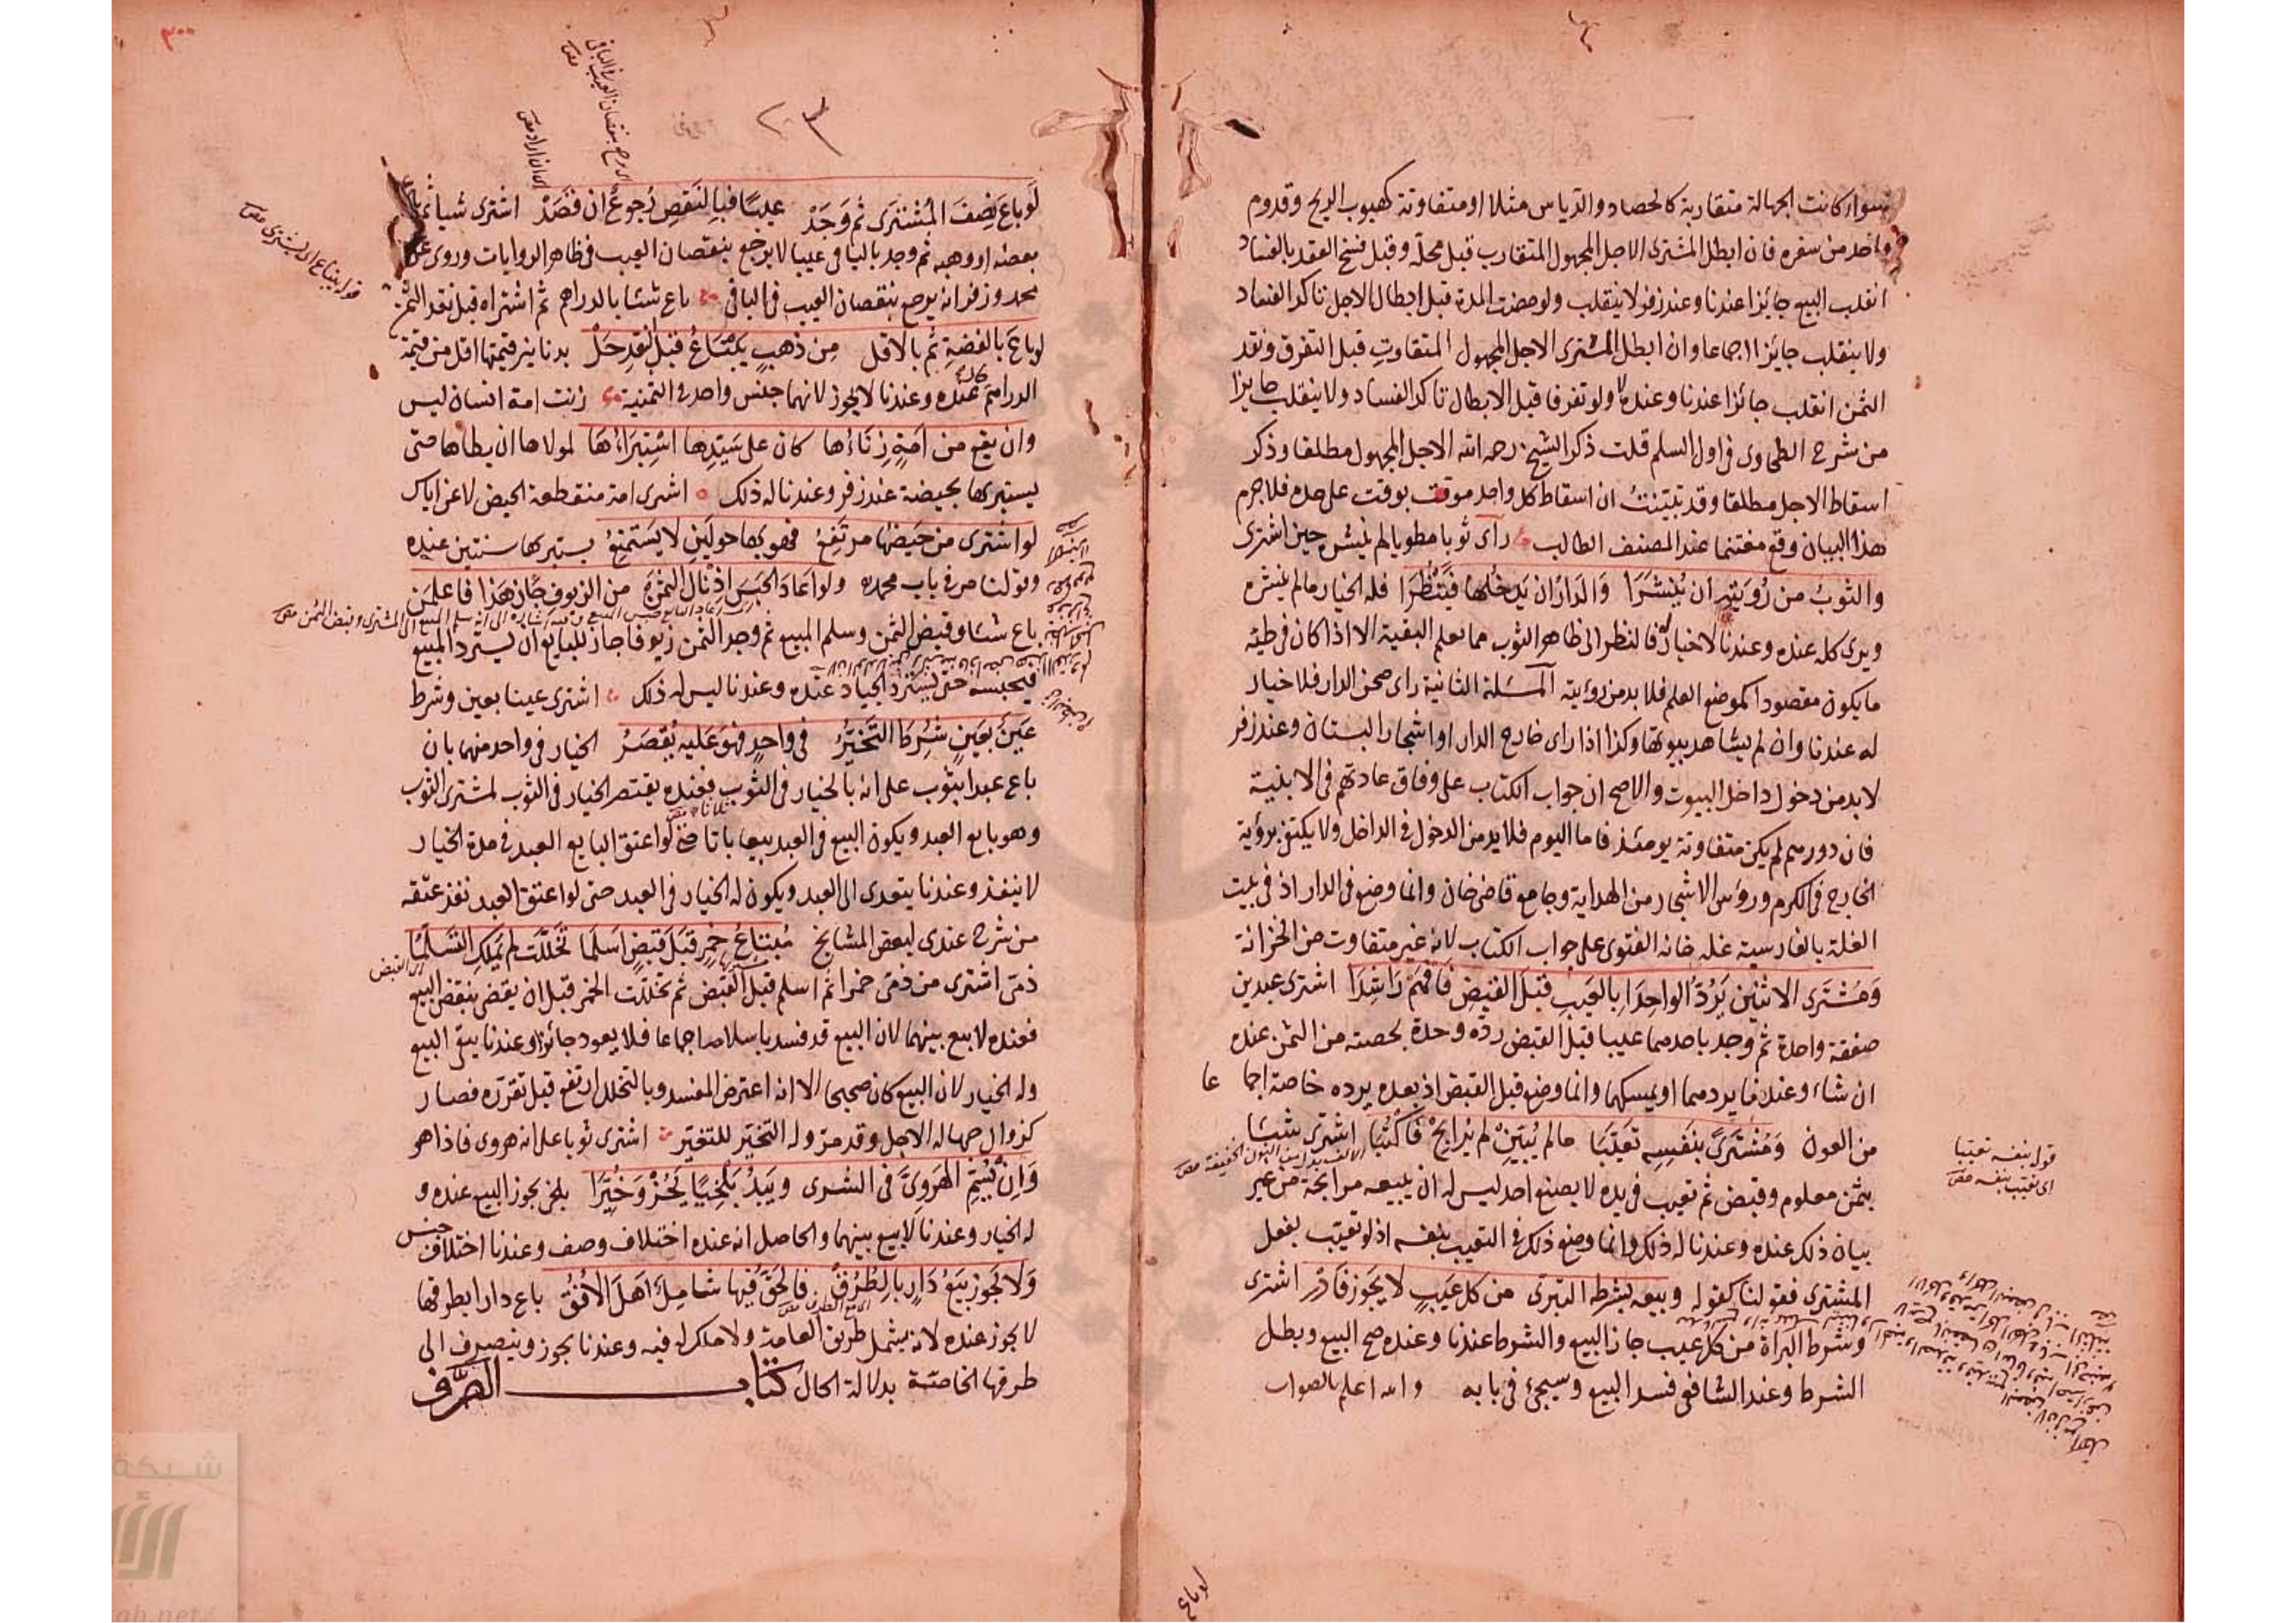 سواء كانت الجهالة متقاربة كالحصاد والدياس مثلا او متفاوتة كهبوب الريح وقدوم
واحد من سفره فان ابطل المشترى الاجل المجهول المتقارب قبل محله وقبل فسخ العقد بالفساد
انقلب البيع جائزا عندنا وعند زفر لا ينقلب ولو مضت المدة قبل ابطال الاجل تاكد الفساد
ولا ينقلب جايزا اجماعا وان ابطل المشترى الاجل المجهول المتفاوت قبل التفرق ونقد
الثمن انقلب جائزا عندنا وعنده لا ولو تفرقا قبل الابطال تاكد الفساد ولا ينقلب جايزا
من شرح الطحاوى فى اول السلم قلت ذكر الشيخ رحمه الله الاجل المجهول مطلقا وذكر
اسقاط الاجل مطلقا وقد تبينت ان اسقاط كل واحد موقت بوقت على حده فلا جرم
هذا البيان وقع مغتنما عند المصنف الطالب رأى ثوبا مطويا لم ينشر حين اشترى
والثوب من رؤيته ان ينشرا والدار ان يدخلها فينظرا فله الخيار مالم ينشره
ويرى كله عنده وعندنا لا خيار له فالنظر الى ظاهر الثوب مما يعلم البقية الا اذا كان فى طيه
ما يكون مقصودا كموضع العلم فلا بد من رؤيته المسئلة الثانية رأى صحن الدار فلا خيار
له عندنا وان لم يشاهد بيوتها وكذا اذا رأى خارج الدار او اشجار البستان وعند زفر
لا بد من دخول داخل البيوت والاصح ان جواب الكتاب على وفاق عادتهم فى الابنية
فان دورهم لم يكن متفاوتة يومئذ فاما اليوم فلا بد من الدخول فى الداخل ولا يكتفى برؤية
الخارج فى الكرم ورؤس الاشجار من الهداية وجامع قاضى خان وانما وضع فى الدار اذ فى بيت
الغلة بالفارسية غله خانه الفتوى على جواب الكتاب لانه غير متفاوت من الخزانة
ومشترى الاثنين يرد الواحدا بالعيب قبل القبض فافهم راشدا اشترى عبدين
صفقة واحدة ثم وجد باحدهما عيبا قبل القبض رده وحده بحصته من الثمن عنده
ان شاء وعندنا يردهما او يمسكهما وانما وضع قبل القبض اذ بعده يرده خاصة اجماعا
من العون ومشترى بنفسه تعيبا مالم يبين لم يرابح فاكتبا اشترى شيئا
بثمن معلوم وقبض ثم تعيب فى يده لا بصنع احد ليس له ان يبيعه مرابحة من غير
بيان ذلك عنده وعندنا له ذلك وانما وضع ذلك فى التعيب بنفسه اذ لو تعيب بفعل
المشترى فقولنا كقوله وبيعه بشرطه التبرى من كل عيب لا يجوز فادر اشترى
وشرط البراة من كل عيب جاز البيع والشرط عندنا وعنده صح البيع وبطل
الشرط وعند الشافعى فسد البيع وسيجئ فى بابه والله اعلم بالصواب
قوله بنفسه تعيبا
اى تعيب بنفسه
لو باع
٢٠٣
لو باع نصف المشترى ثم وجد عيبا فبالنقص رجوع ان قصد اشترى شيأ ثم باع
بعضه او وهبه ثم وجد بالباقى عيبا لا يرجع بنقصان العيب فى ظاهر الروايات وروى عن
محمد وزفر انه يرجع بنقصان العيب فى الباقى باع شيئا بالدراهم ثم اشتراه قبل نقد الثمن
لو باع بالفضة ثم بالاقل من ذهب يبتاع قبل النقد حل بدنانير قيمتها اقل من قيمة
الدراهم عنده وعندنا لا يجوز لانهما جنس واحد فى الثمنية زنت امة انسان ليس
وان يقع من امة زناءها كان على سيدها استبراءها لمولاها ان يطاها حتى
يستبرئها بحيضة عند زفر وعندنا له ذلك اشترى امة منقطعة الحيض لا عن اياس
لو اشترى من حيضها مرتفع فهو بها حولين لا يستمتع يستبرئها سنتين عنده
وقولنا مر فى باب محمد ولو اعاد الحبس اذ نال الثمن من الزيوف جاز هذا فاعلمن
باع شيئا وقبض الثمن وسلم المبيع ثم وجد الثمن زيوفا جاز للبايع ان يسترد المبيع
فيحبسه حتى يسترد الجياد عنده وعندنا ليس له ذلك اشترى عينا بعين وشرط
عين بعين شرط التخير فى واحد فهو عليه يقصر الخيار فى واحد منهما بان
باع عبدا بثوب على انه بالخيار فى الثوب فعنده يقتصر الخيار فى الثوب لمشترى الثوب
وهو بايع العبد ويكون البيع فى العبد بيعا باتا حتى لو اعتق البايع العبد فى مدة الخيار
لا ينفذ وعندنا يتعدى الى العبد ويكون له الخيار فى العبد حتى لو اعتق العبد نفذ عتقه
من شرح عندى لبعض المشايخ مبتاع خمر قبل قبض اسلما تخللت لم يملك التسلما
ذمى اشترى من ذمى خمرا ثم اسلم قبل القبض ثم تخللت الخمر قبل ان يقضى بنقض البيع
فعنده لا بيع بينهما لان البيع قد فسد باسلامه اجماعا فلا يعود جائزا وعندنا يبقى البيع
وله الخيار لان البيع كان صحيحا الا انه اعترض المفسد وبالتخلل ارتفع قبل تقرره فصار
كزوال جهالة الاجل وقد مر وله التخير للتغير اشترى ثوبا على انه هروى فاذا هو
وان يسم الهروى فى الشرى ويبد بلخيا يجز وخيرا بلخى يجوز البيع عنده و
له الخيار وعندنا لا بيع بينهما والحاصل انه عنده اختلاف وصف وعندنا اختلاف جنس
ولا يجوز بيع دار بالطرق فالحق فيها شامل اهل الافق باع دارا بطرقها
لا يجوز عنده لانه يشمل طريق العامة ولا ملك له فيه وعندنا يجوز وينصرف الى
طرقها الخاصة بدلالة الحال كتاب الصرف
قوله يبتاع اى يشترى
شبكة